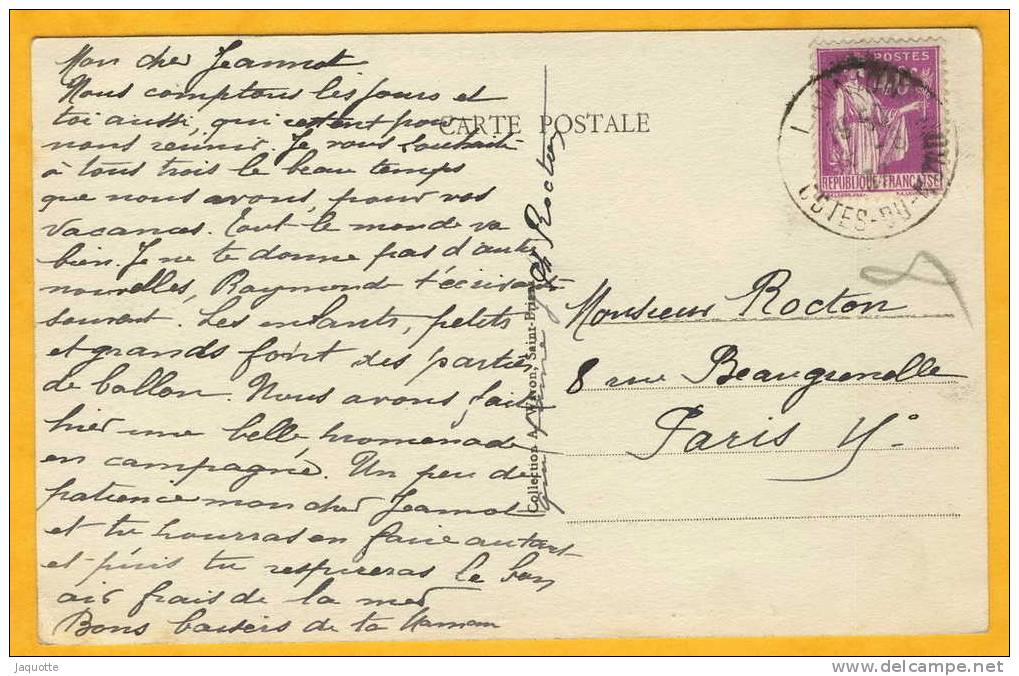 Mon cher Jeannot
Nous comptons les jours et
toi aussi, qui restent pour
nous reunir. Je vous souhaite
à tous trois le beau temps
que nous avons, pour vos
vacances. Tout le monde va
bien. Je ne te donne pas d'autre
nouvelles, Raymond t'écrivant
souvent. Les enfants, petits
et grands font des parties
de ballon. Nous avons fait
hier une belle promenade
en campagne. Un peu de
patience mon cher Jeannot
et tu pourras en faire autant
et puis tu respireras le bon
air frais de la mer
Bons baisers de ta Maman
CARTE POSTALE
Collection A. Waron, Saint-Brieuc
Rocton
POSTES
REPUBLIQUE FRANÇAISE
COTES-DU-N
Monsieur Rocton
8 rue Beaugrenelle
Paris
Jaquotte
www.delcampe.net